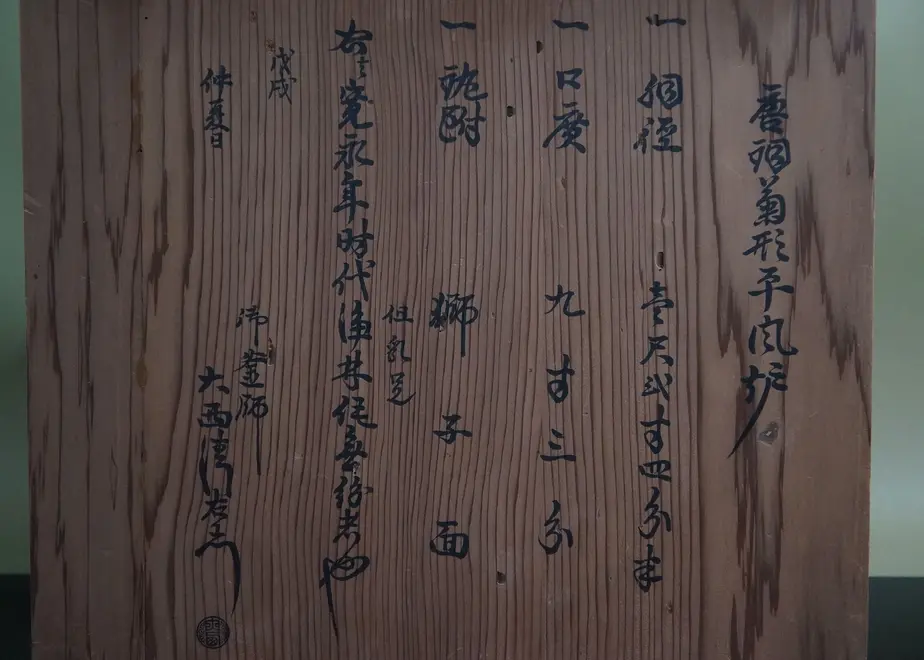 唐銅菊形平風炉
一 胴径 壱尺弐寸四分半
一 口廣 九寸三分
一 鐶附 獅子面
但乳足
寛永年時代浄林作無紛者也
戊戌
御釜師
大西清右衛門